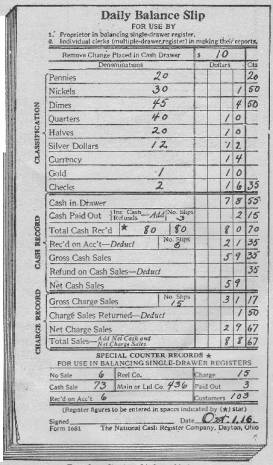 Daily Balance Slip
FOR USE BY
1. Proprietor in balancing single-drawer register.
2. Individual clerks (multiple-drawer register) in making their reports.
Remove Change Placed in Cash Drawer $ 10
Denominations Dollars Cts
CLASSIFICATION
Pennies 20 20
Nickels 30 1 50
Dimes 45 4 50
Quarters 40 10
Halves 20 10
Silver Dollars 12 12
Currency 14
Gold 1 10
Checks 2 16 35
CASH RECORD
Cash in Drawer 78 55
Cash Paid Out Inc. Cash Refunds—Add No. Slips 3 2 15
Total Cash Rec'd ★ 80 80 80 70
Rec'd on Acc't—Deduct No. Slips 6 21 35
Gross Cash Sales 59 35
Refund on Cash Sales—Deduct 35
Net Cash Sales 59
CHARGE RECORD
Gross Charge Sales No. Slips 15 31 17
Charge Sales Returned—Deduct 1 50
Net Charge Sales 29 67
Total Sales—Add Net Cash and Net Charge Sales 88 67
SPECIAL COUNTER RECORDS ★
FOR USE IN BALANCING SINGLE-DRAWER REGISTERS
No Sale 6 Reel Co. Charge 15
Cash Sale 73 Main or Lid Co. 436 Paid Out 3
Rec'd on Acc't 6 Customers 103
(Register figures to be entered in spaces indicated by (★) star)
Signed Date Oct. 1, 16.
Form 1681 The National Cash Register Company, Dayton, Ohio